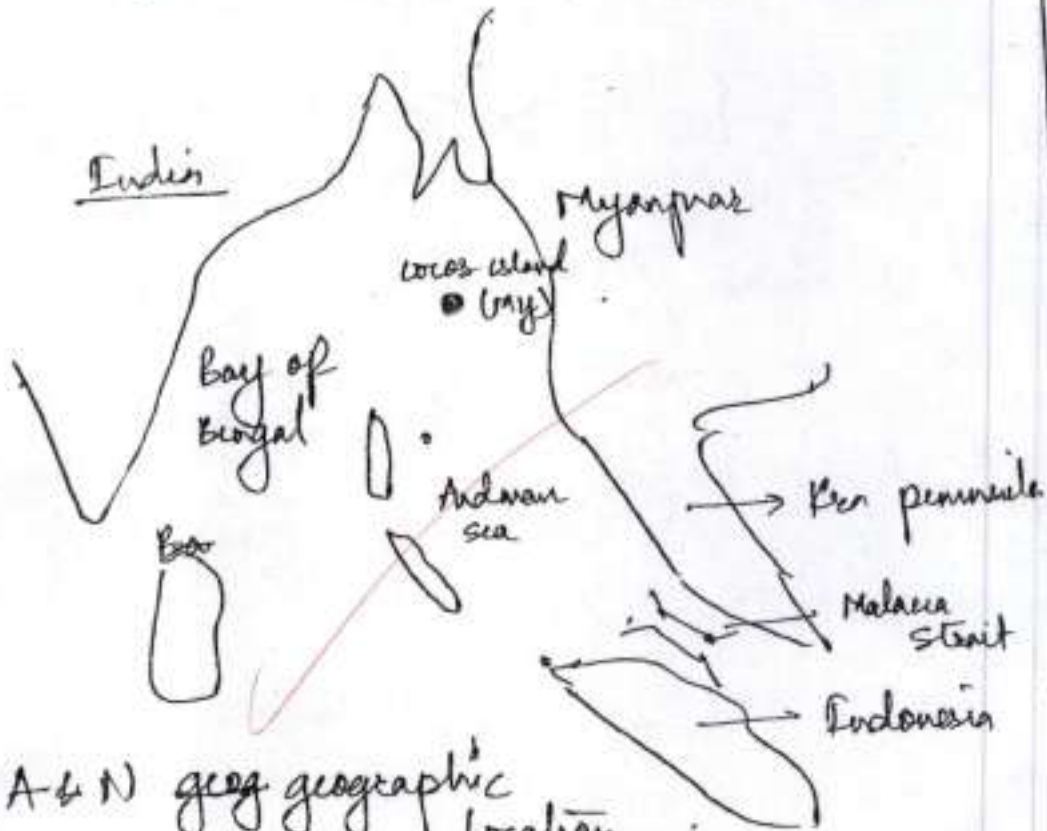 India
Myanmar
Cocos island
(My)
Bay of
Bengal
Andman
sea
peninsula
Malacca
Strait
Indonesia
A & N geog geographic
Location